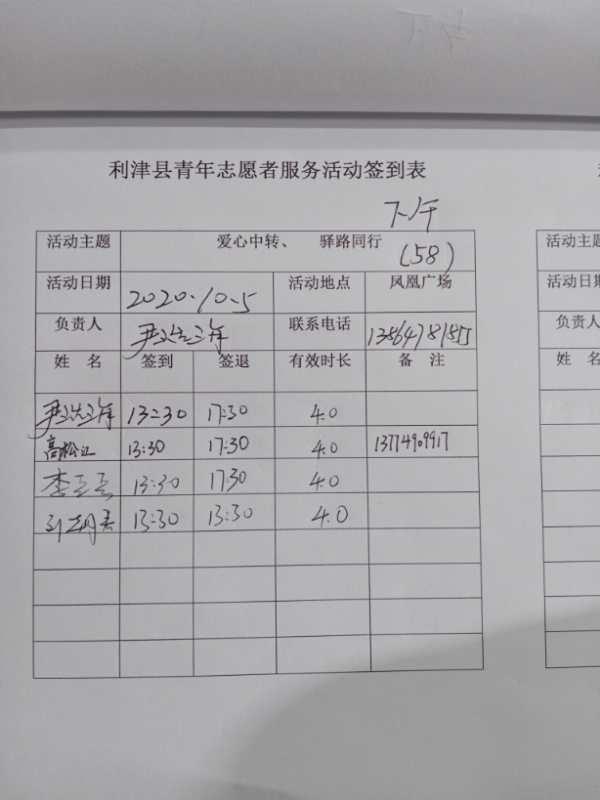 利津县青年志愿者服务活动签到表
下午
活动主题 爱心中转、 驿路同行 (58)
活动日期 2020.10.5 活动地点 凤凰广场
负责人 联系电话
姓 名 签到 签退 有效时长 备 注
13:30 17:30 4.0
高松江 13:30 17:30 4.0 13774909917
13:30 17:30 4.0
13:30 13:30 4.0
活动主题
活动日期
负责人
姓 名